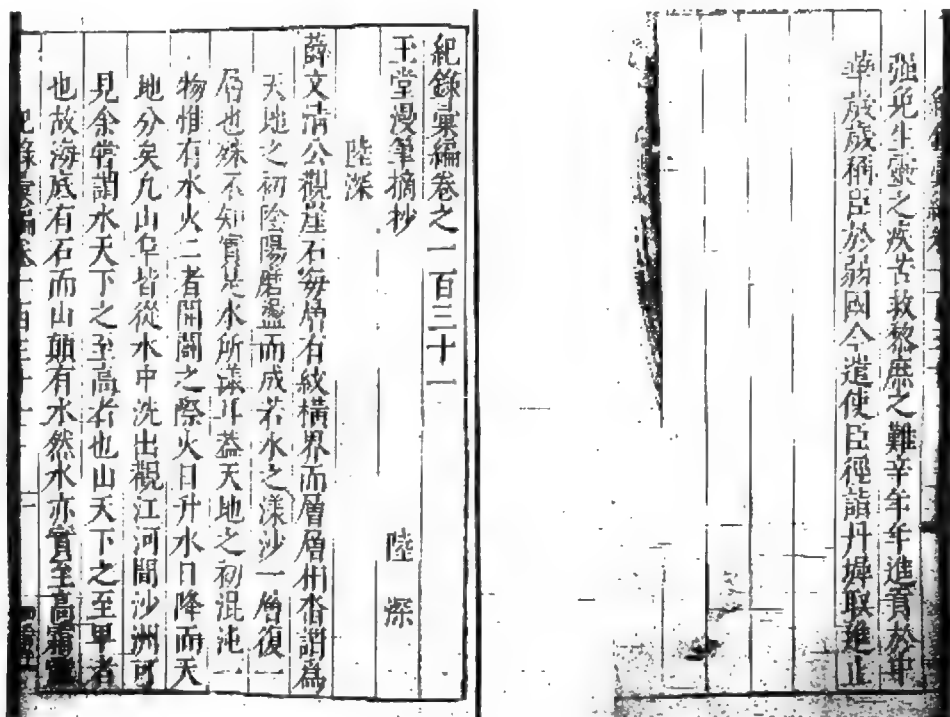 强免生靈之疾苦救黎庶之難辛年年進貢於中
華歲歲稱臣於弱國今遣使臣徑詣丹墀取進止
紀錄彙編卷之一百三十一
玉堂漫筆摘抄
陸深
陸深
薛文清公觀崖石每層有紋橫界而層層相沓謂爲
天地之初陰陽磨盪而成若水之漾沙一層復一
層也殊不知實是水所漾耳葢天地之初混沌一
物惟有水火二者開闢之際火日升水日降而天
地分矣凡山阜皆從水中洗出觀江河間沙洲可
見余嘗謂水天下之至高者也山天下之至卑者
也故海底有石而山顛有水然水亦實至高霜